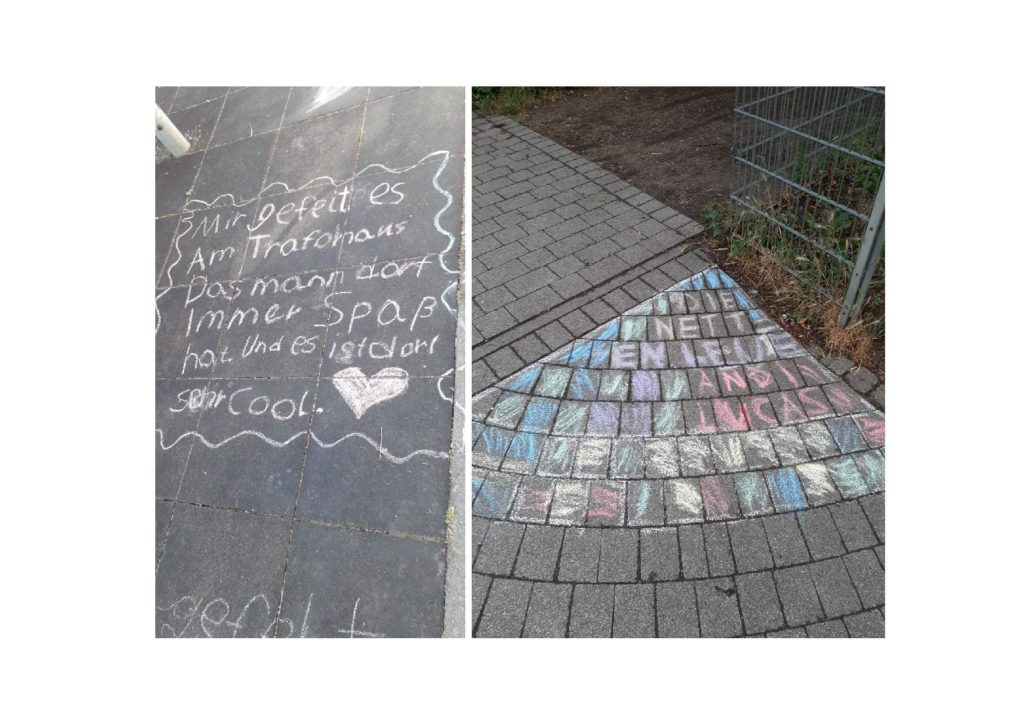 Mir gefelt es
Am Trafohaus
Das mann dort
Immer Spaß
hat. Und es ist dort
sehr Cool.
gefelt
DIE
NETTE
EN LEUTE
ANDI
LUCAS